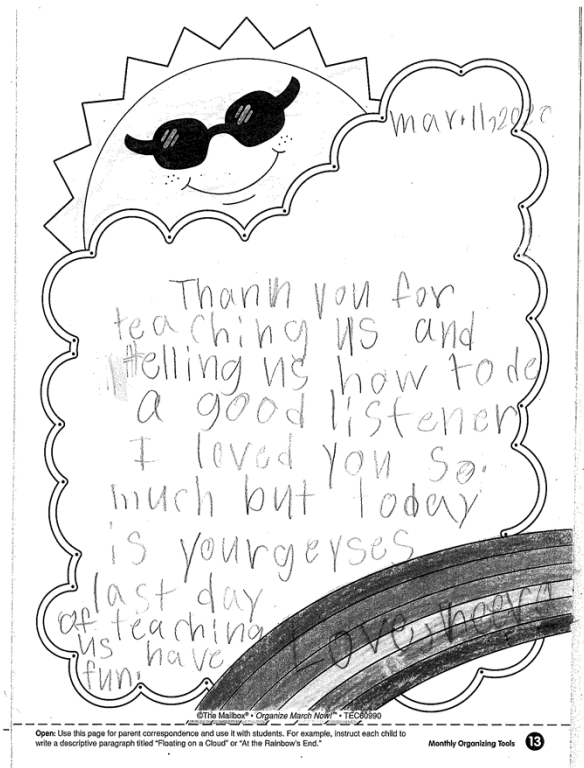 mar.11,2020
Thank you for
teaching us and
telling us how to de
a good listener
I loved you so.
much but today
is yourgeyses
last day
of teaching
us have
fun.
Love, neera
©The Mailbox® • Organize March Now!™ • TEC60990
Open: Use this page for parent correspondence and use it with students. For example, instruct each child to
write a descriptive paragraph titled "Floating on a Cloud" or "At the Rainbow's End."
Monthly Organizing Tools 13